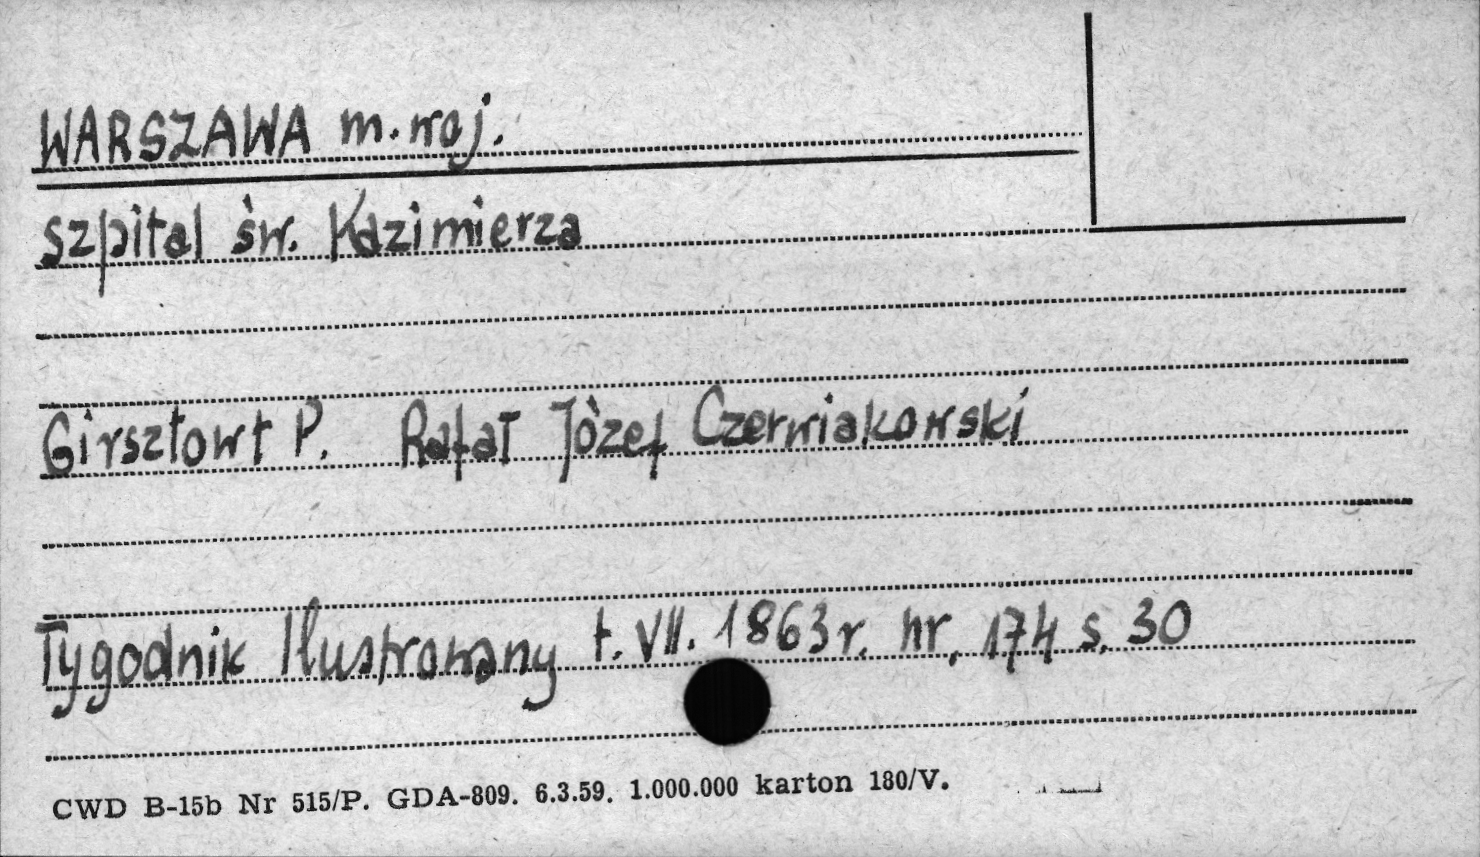 WARSZAWA m. woj.
szpital św. Kazimierza
Girsztowt P. Rafał Józef Czerwiakowski
Tygodnik Ilustrowany t. VII. 1863 r. nr. 174 s. 30
CWD B-15b Nr 515/P. GDA-809. 6.3.59. 1.000.000 karton 180/V.